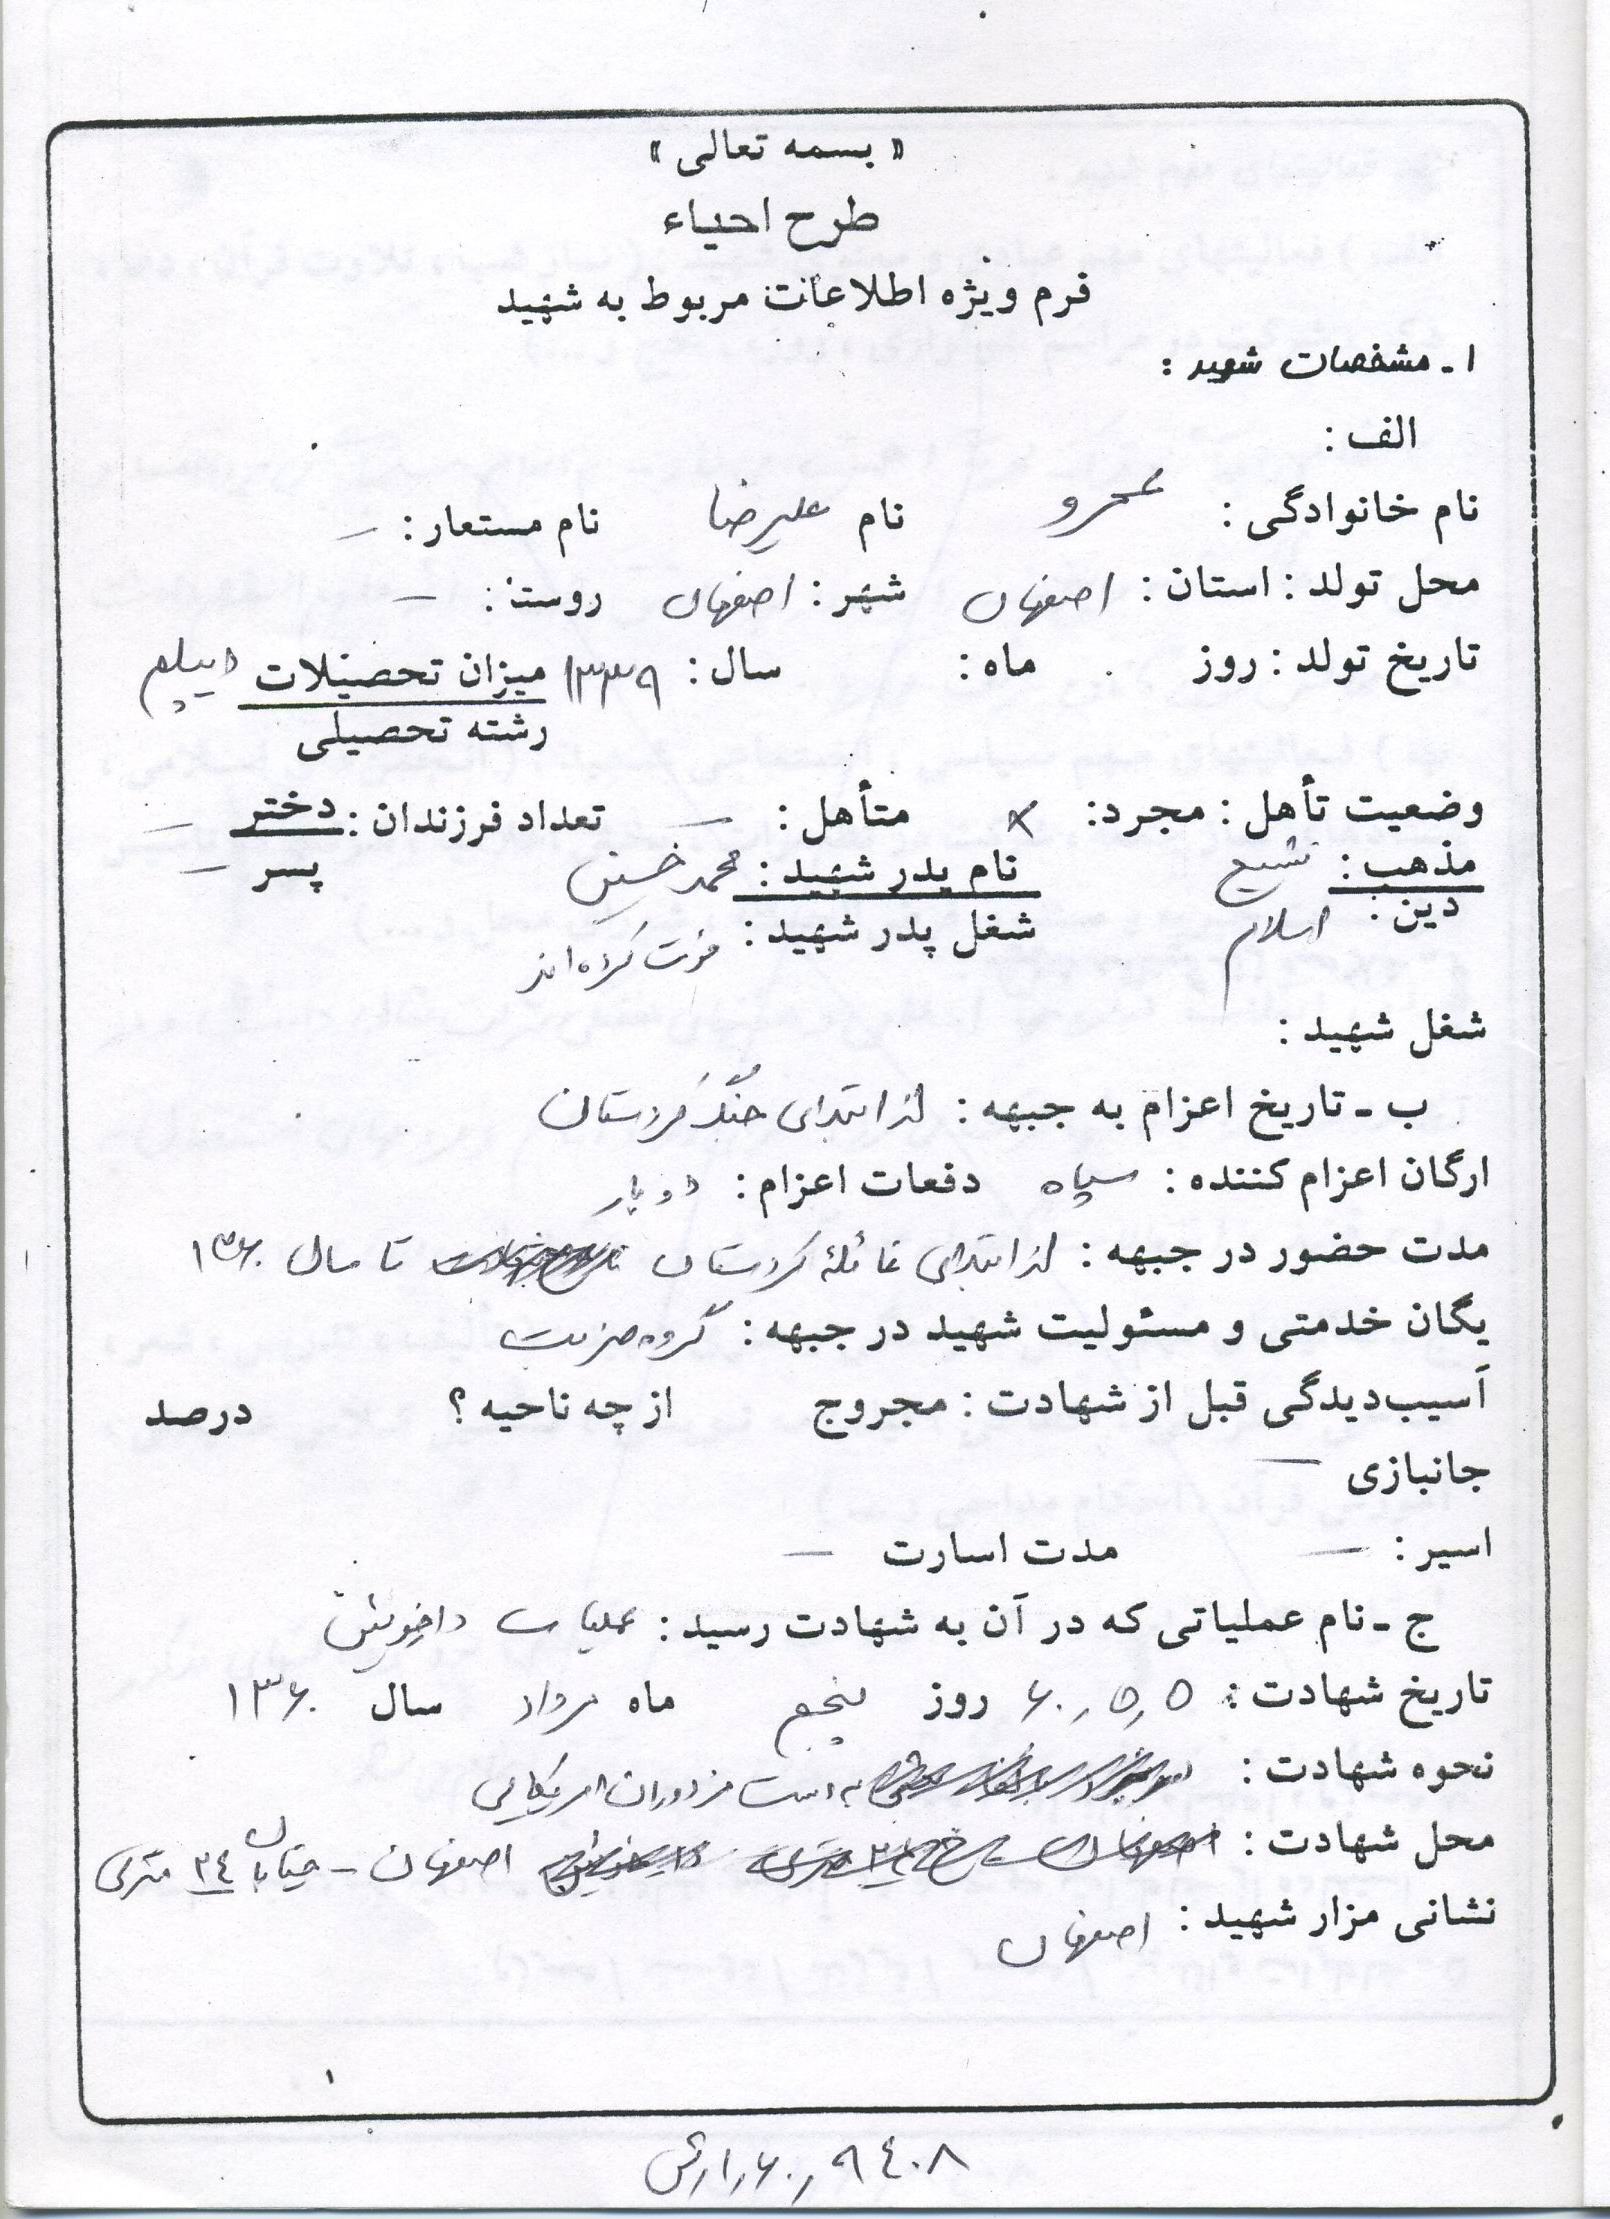 « بسمه تعالی »
طرح احیاء
فرم ویژه اطلاعات مربوط به شهید
۱ - مشخصات شهید :
الف :
نام خانوادگی : عمرو نام علیرضا نام مستعار : –
محل تولد : استان : اصفهان شهر : اصفهان روستا : –
تاریخ تولد : روز ماه : سال : ۱۳۳۹ میزان تحصیلات دیپلم
رشته تحصیلی
وضعیت تأهل : مجرد : × متأهل : – تعداد فرزندان : دختر –
مذهب : تشیع نام پدر شهید : محمد حسین پسر –
دین : اسلام شغل پدر شهید : فوت کرده اند
شغل شهید :
ب - تاریخ اعزام به جبهه : از ابتدای جنگ کردستان
ارگان اعزام کننده : سپاه دفعات اعزام : دوبار
مدت حضور در جبهه : از ابتدای غائله کردستان تا سال ۱۳۶۰
یگان خدمتی و مسئولیت شهید در جبهه : گروه ضربت
آسیب‌دیدگی قبل از شهادت : مجروح از چه ناحیه ؟ درصد
جانبازی –
اسیر : – مدت اسارت –
ج - نام عملیاتی که در آن به شهادت رسید : عملیات
تاریخ شهادت : ۶۰٫۵٫۵ روز پنجم ماه مرداد سال ۱۳۶۰
نحوه شهادت : به دست مزدوران امریکایی
محل شهادت : اصفهان - خیابان ۲٤ متری
نشانی مزار شهید : اصفهان
۱
۹٤۰۸